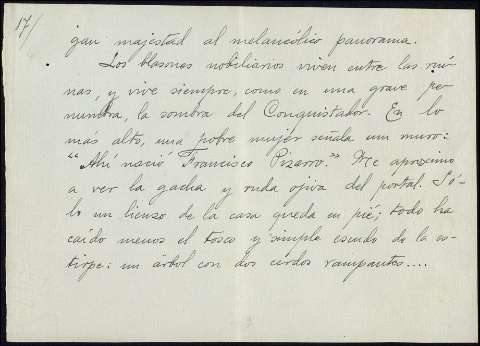 17/
gan majestad al melancólico panorama.
Los blasones nobiliarios viven entre las rui-
nas, y vive siempre, como en una grave pe-
numbra, la sombra del Conquistador. En lo
más alto, una pobre mujer señala un muro:
"Ahí nació Francisco Pizarro." Me aproximo
a ver la gacha y ruda ojiva del portal. Só-
lo un lienzo de la casa queda en pié; todo ha
caído menos el tosco y simple escudo de la es-
tirpe: un árbol con dos cerdos rampantes....